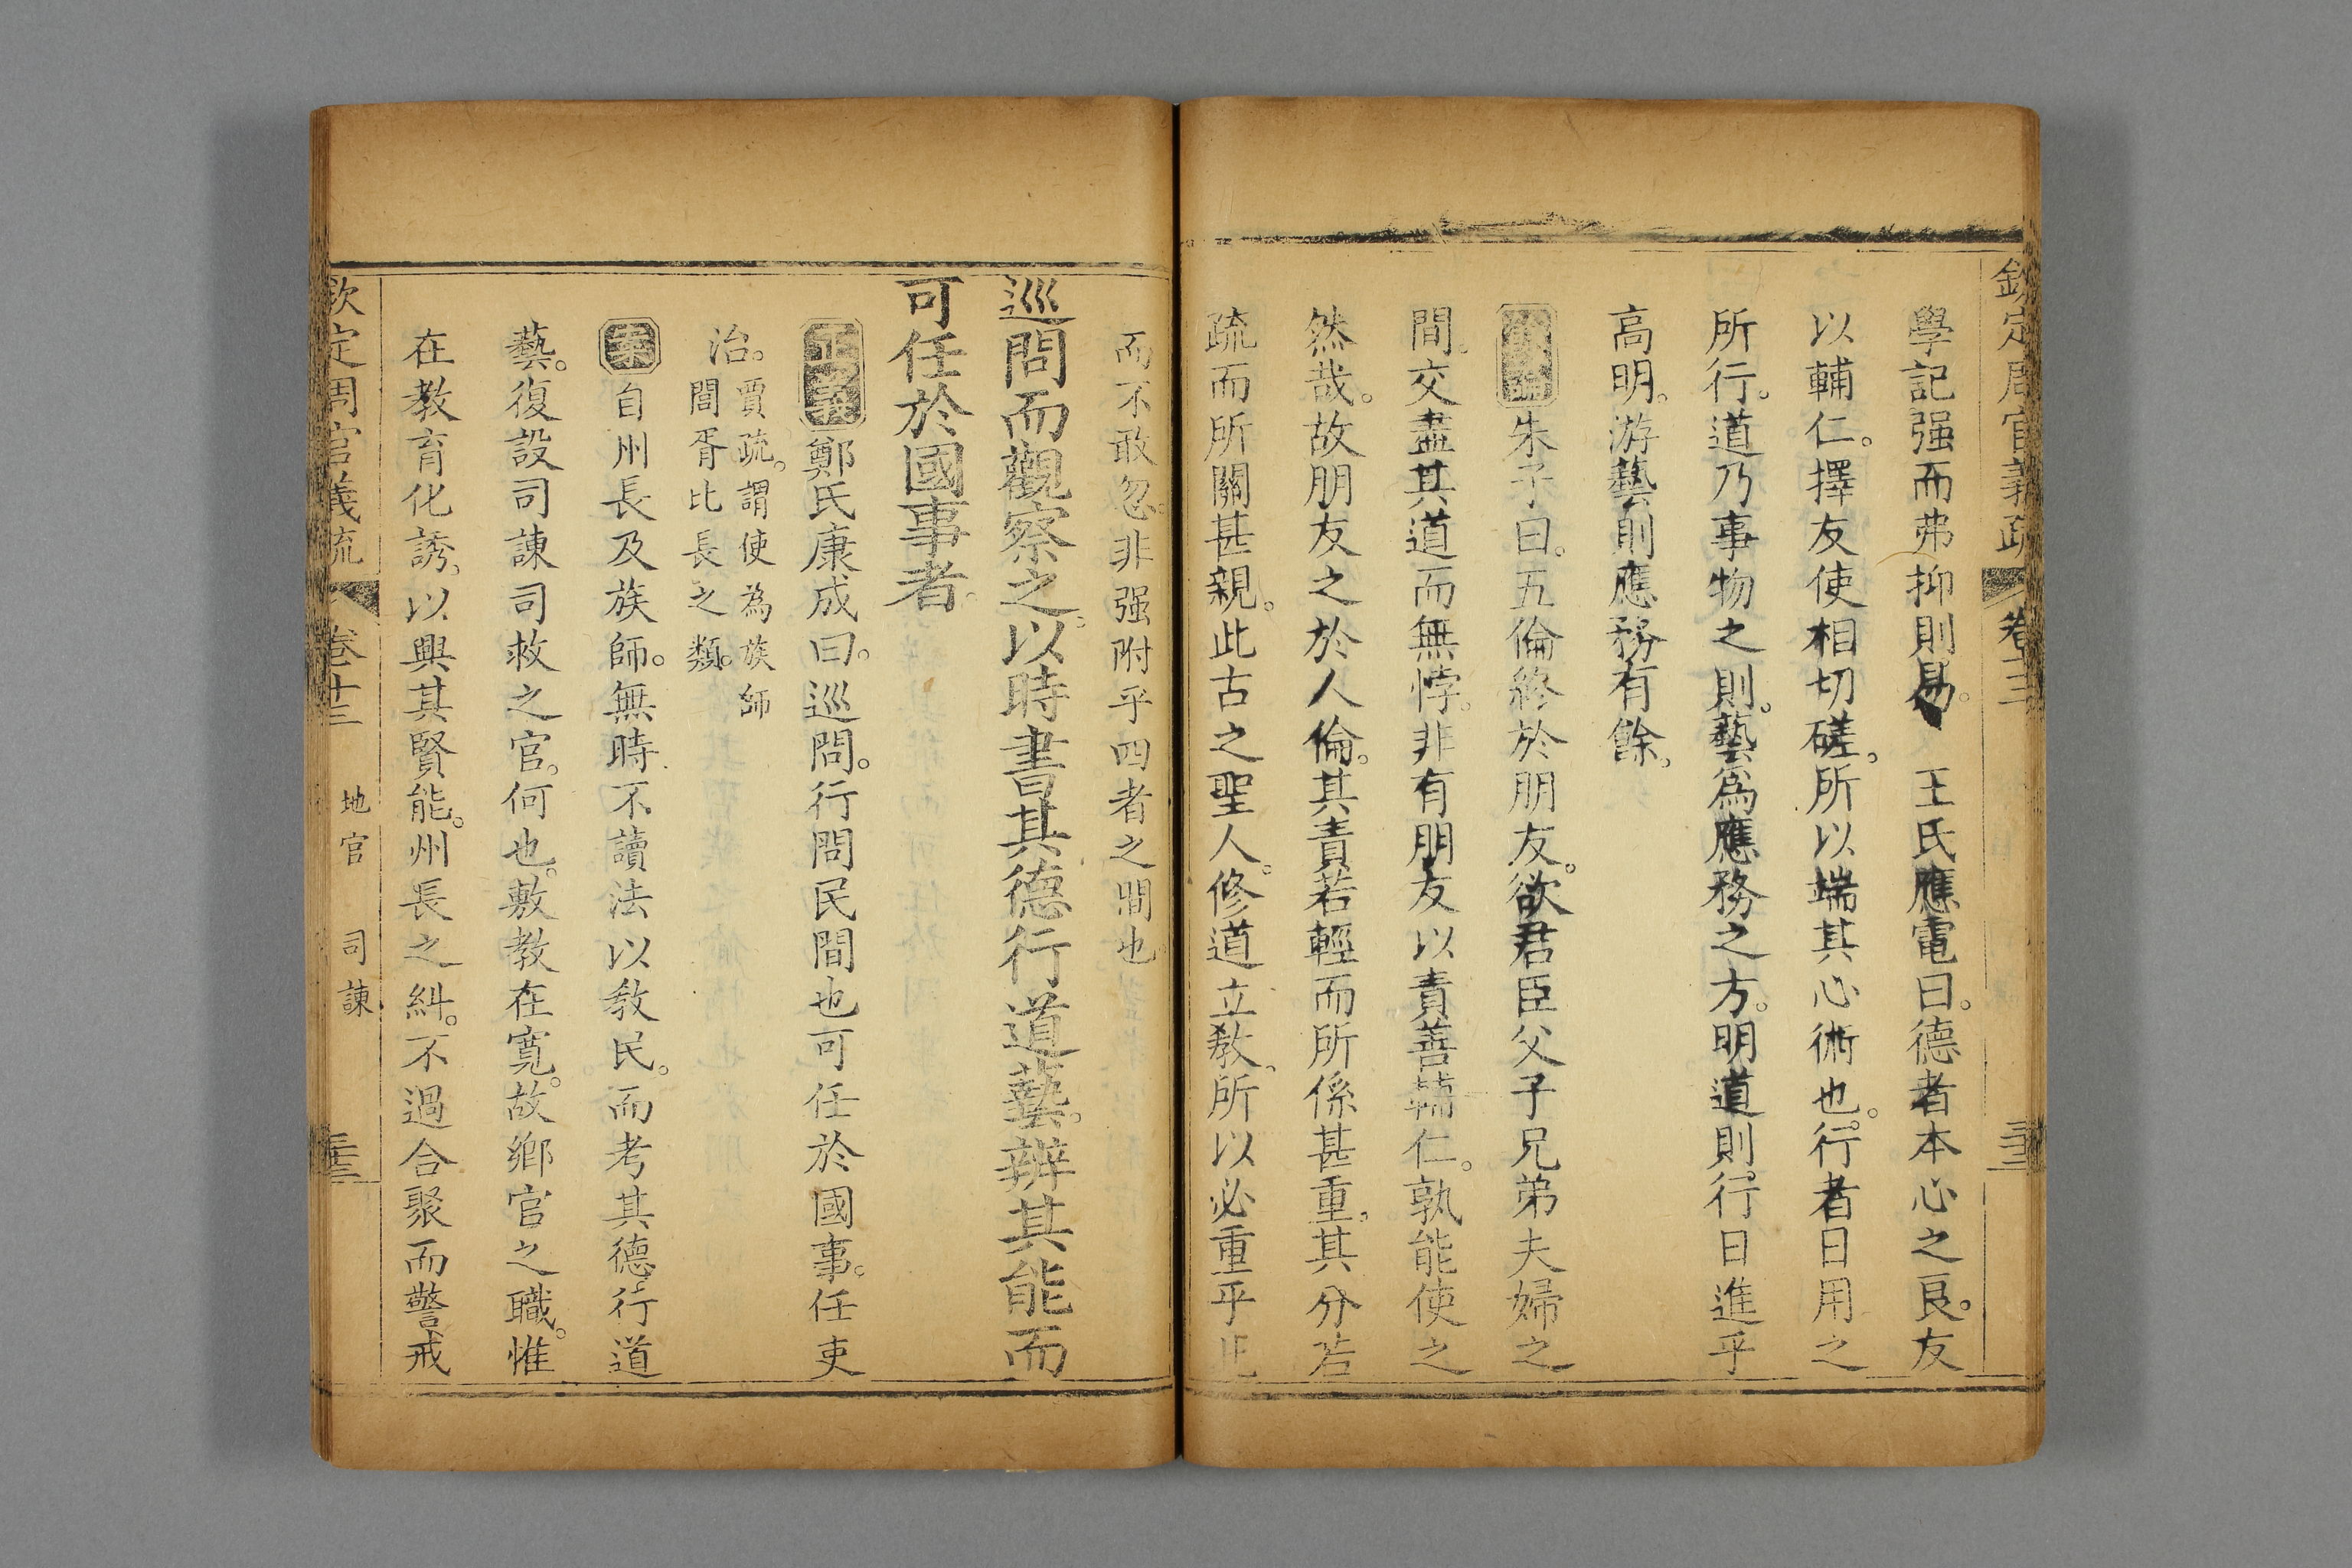 欽定周官義疏 卷十三
學記强而弗抑則易。 王氏應電曰。德者本心之良。友
以輔仁。擇友使相切磋。所以端其心術也。行者日用之
所行。道乃事物之則。藝爲應務之方。明道則行日進乎
高明。游藝則應務有餘。
朱子曰。五倫終於朋友。欲君臣父子兄弟夫婦之
間。交盡其道而無悖。非有朋友以責善輔仁。孰能使之
然哉。故朋友之於人倫。其責若輕而所係甚重。其分若
疏而所關甚親。此古之聖人。修道立教。所以必重乎此
而不敢忽。非强附乎四者之間也
巡問而觀察之。以時書其德行道藝。辨其能而
可任於國事者。
正義鄭氏康成曰。巡問。行問民間也可任於國事。任吏
治。賈疏。謂使為族師
閭胥比長之類。
案自州長及族師。無時不讀法以教民。而考其德行道
藝。復設司諫司救之官。何也。敷教在寬。故鄉官之職。惟
在教育化誘。以興其賢能。州長之糾。不過合聚而警戒
欽定周官義疏 卷十三 地官 司諫